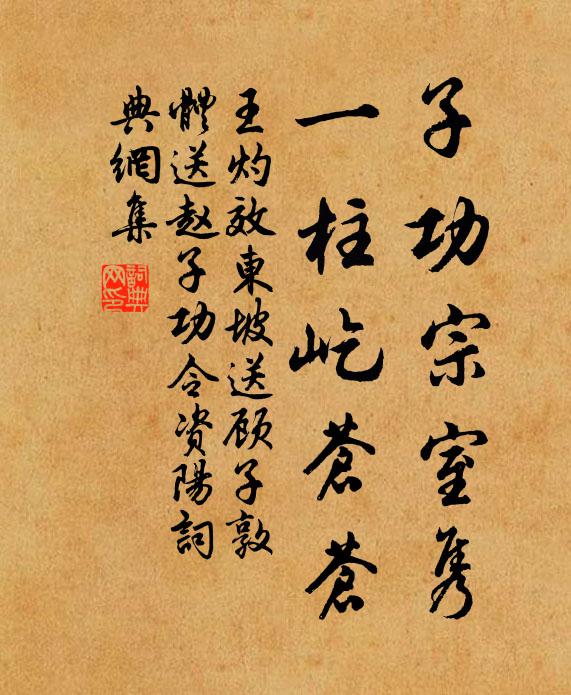 子功宗室隽
一柱屹蒼蒼
王灼效東坡送顾子敦
體送赵子功令资陽詞
典網集
詞典
网印